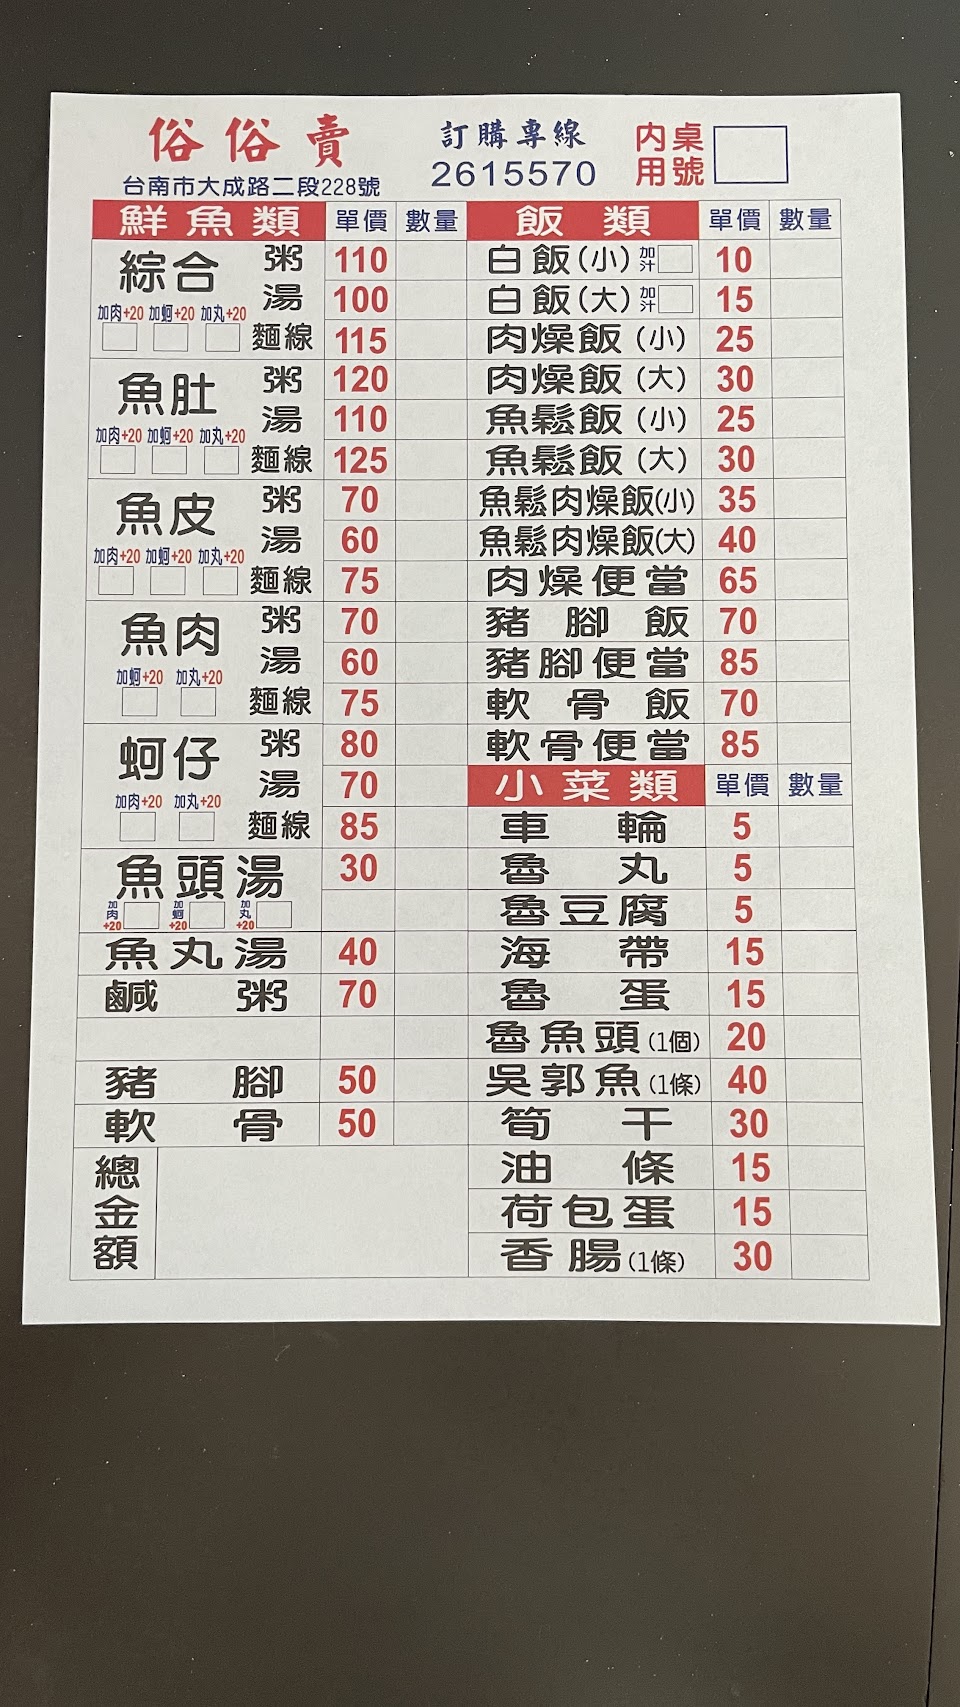 俗俗賣
台南市大成路二段228號
訂購專線
2615570
內用
桌號
鮮魚類 單價 數量
綜合 加肉+20 加蚵+20 加丸+20
粥 110
湯 100
麵線 115
魚肚 加肉+20 加蚵+20 加丸+20
粥 120
湯 110
麵線 125
魚皮 加肉+20 加蚵+20 加丸+20
粥 70
湯 60
麵線 75
魚肉 加蚵+20 加丸+20
粥 70
湯 60
麵線 75
蚵仔 加肉+20 加丸+20
粥 80
湯 70
麵線 85
魚頭湯 30
加肉+20 加蚵+20 加丸+20
魚丸湯 40
鹹粥 70
豬腳 50
軟骨 50
總金額
飯類 單價 數量
白飯(小) 加汁 10
白飯(大) 加汁 15
肉燥飯(小) 25
肉燥飯(大) 30
魚鬆飯(小) 25
魚鬆飯(大) 30
魚鬆肉燥飯(小) 35
魚鬆肉燥飯(大) 40
肉燥便當 65
豬腳飯 70
豬腳便當 85
軟骨飯 70
軟骨便當 85
小菜類 單價 數量
車輪 5
魯丸 5
魯豆腐 5
海帶 15
魯蛋 15
魯魚頭(1個) 20
吳郭魚(1條) 40
筍干 30
油條 15
荷包蛋 15
香腸(1條) 30